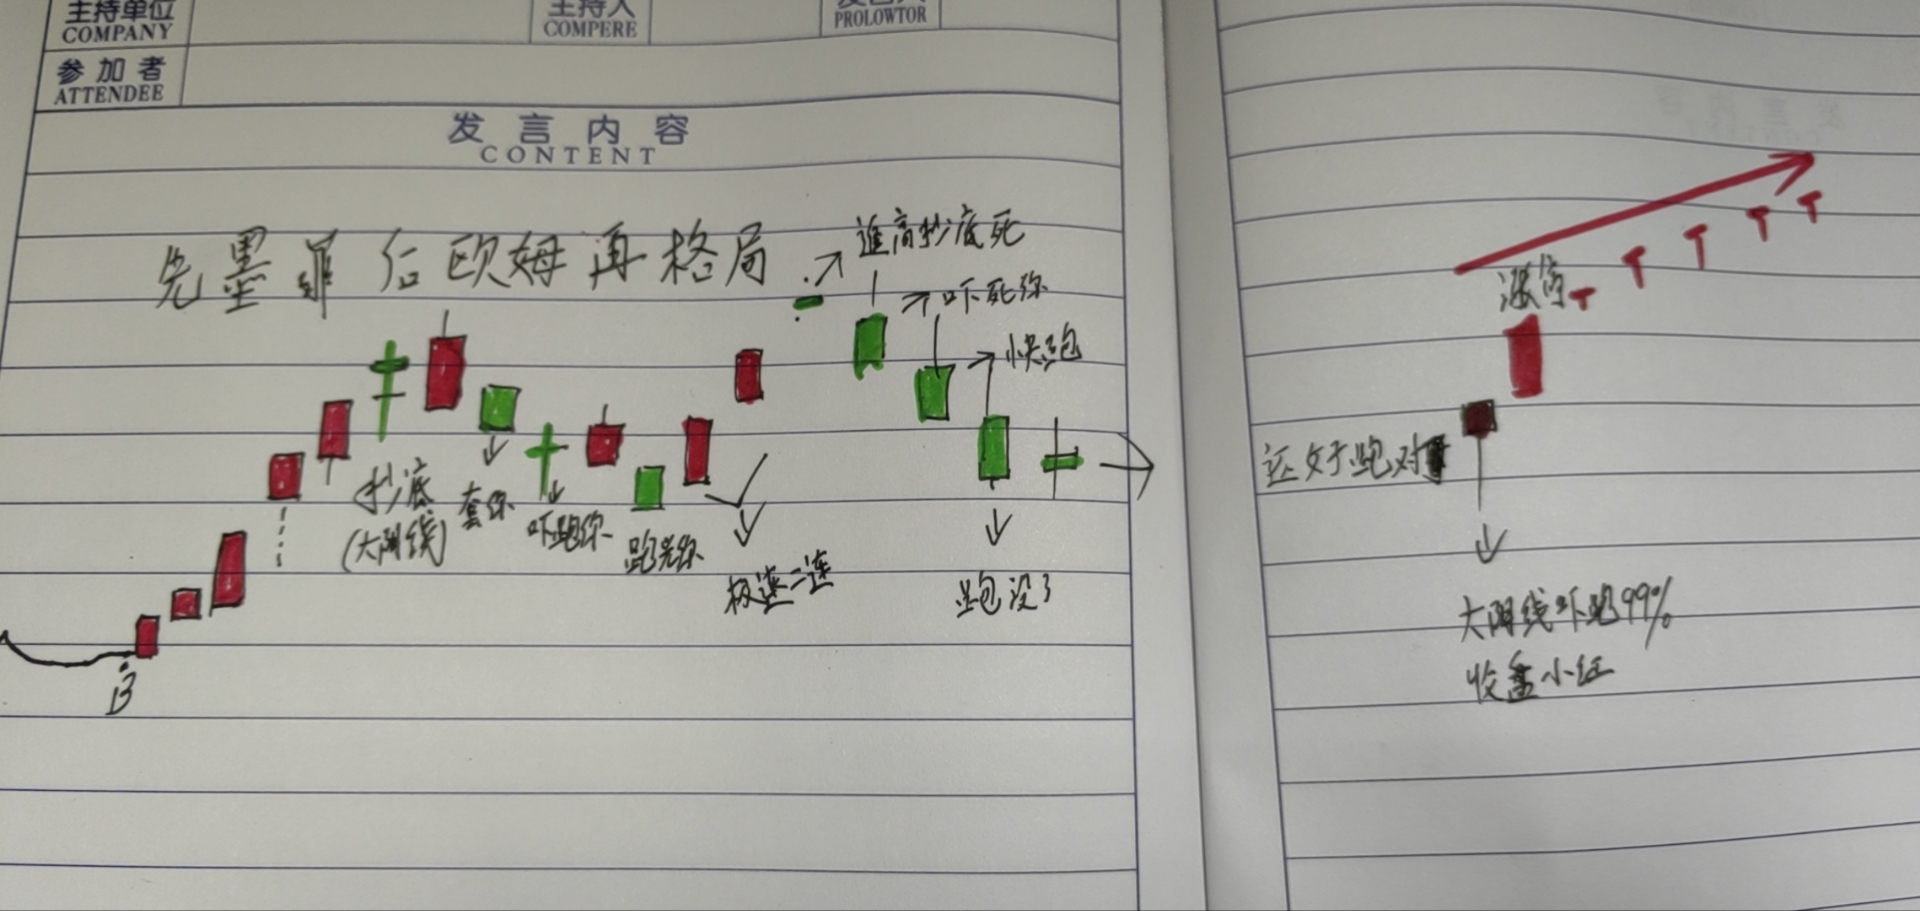 主持单位
COMPANY
主持人
COMPERE
PROLOWTOR
参加者
ATTENDEE
发言内容
CONTENT
先墨菲后欧姆再格局
追高抄底死
吓死你
快跑
抄底
(大阴线)
套你
吓跑你
跑光你
极速二连
跑没了
B
涨停
T T T T T
还好跑对
大阴线吓跑99%
收盘小红